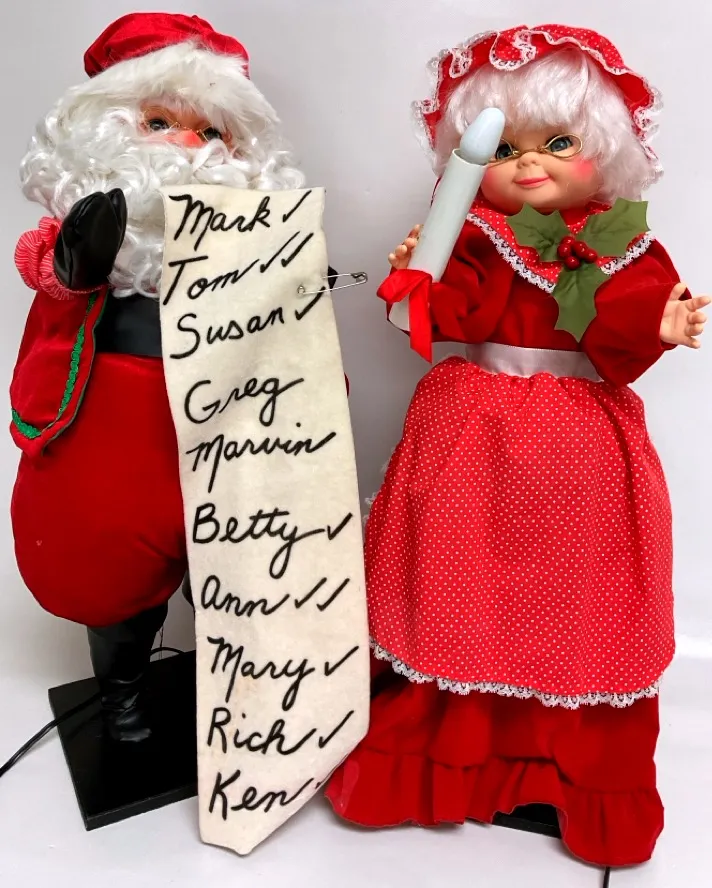 Mark ✓
Tom ✓✓
Susan ✓
Greg
Marvin
Betty ✓
Ann ✓✓
Mary ✓
Rich ✓
Ken